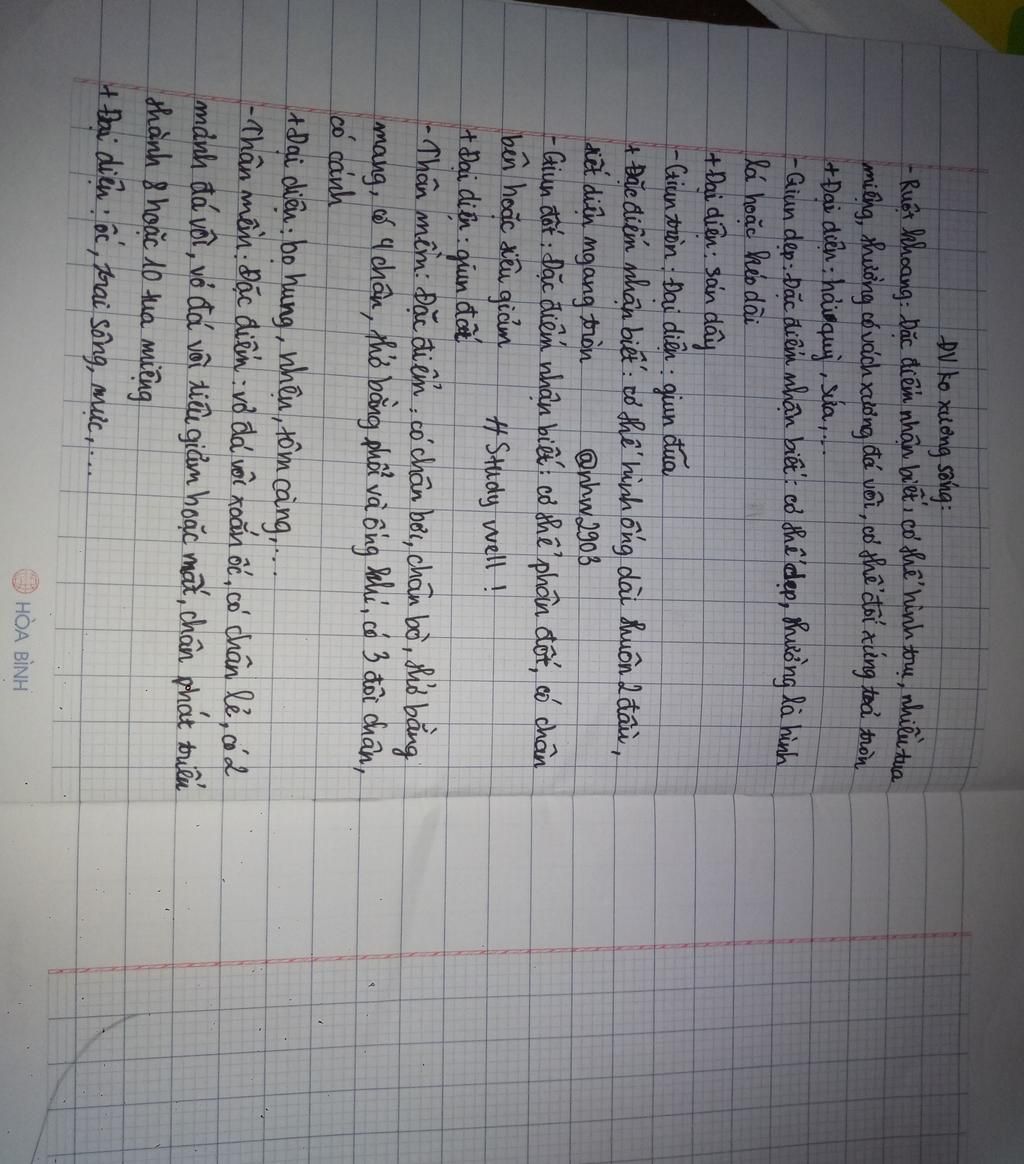 ĐV ko xương sống:
- Ruột khoang: Đặc điểm nhận biết: cơ thể hình trụ, nhiều tua
miệng, thường có vách xương đá vôi, cơ thể đối xứng toả tròn
+ Đại diện: hải quỳ, sứa,...
- Giun dẹp: Đặc điểm nhận biết: cơ thể dẹp, thường là hình
lá hoặc kéo dài
+ Đại diện: sán dây
- Giun tròn: Đại diện: giun đũa
+ Đặc điểm nhận biết: cơ thể hình ống dài thuôn 2 đầu,
tiết diện ngang tròn @nhn2903
- Giun đốt: Đặc điểm nhận biết: cơ thể phân đốt, có chân
bên hoặc tiêu giảm #Study well!
+ Đại diện: giun đất
- Thân mềm: Đặc điểm: có chân bơi, chân bò, thở bằng
mang, có 4 chân, thở bằng phổi và ống khí, có 3 đôi chân,
có cánh
+ Đại diện: bọ hung, nhện, tôm càng,...
- Thân mềm: Đặc điểm: vỏ đá vôi xoắn ốc, có chân lẻ, có 2
mảnh đá vôi, vỏ đá vôi tiêu giảm hoặc mất, chân phát triển
thành 8 hoặc 10 tua miệng
+ Đại diện: ốc, trai sông, mực,...
HÒA BÌNH